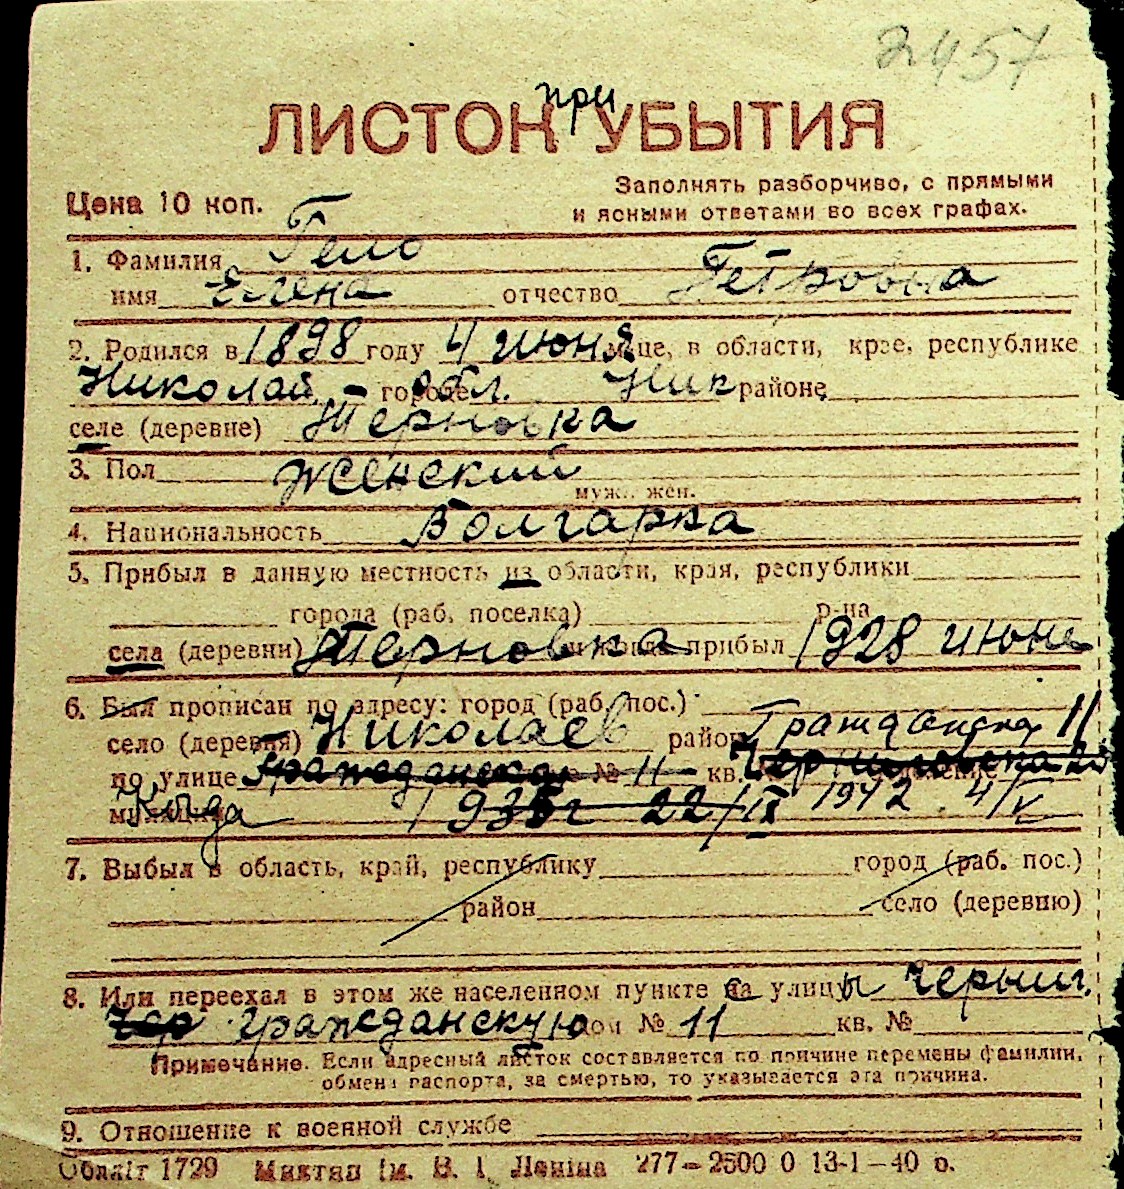 2457
при
ЛИСТОК УБЫТИЯ
Цена 10 коп.
Заполнять разборчиво, с прямыми
и ясными ответами во всех графах.
1. Фамилия Гело
имя Елена отчество Петровна
2. Родился в 1898 году 4 июня м-це, в области, крае, республике
Николай - городе обл. Ник районе
селе (деревне) Терновка
3. Пол Женский
муж., жен.
4. Национальность Болгарка
5. Прибыл в данную местность из области, края, республики
города (раб. поселка) р-на
села (деревни) Терновка прибыл 1928 июне
6. Был прописан по адресу: город (раб. пос.)
село (деревня) Николаев район Гражданская 11
по улице Гражданская № 11 кв. Черниговская
1942 4/V
22/IX
7. Выбыл в область, край, республику город (раб. пос.)
район село (деревню)
8. Или переехал в этом же населенном пункте с улицы Черниг.
Чер Гражданскую дом № 11 кв. №
Примечание. Если адресный листок составляется по причине перемены фамилии,
обмена паспорта, за смертью, то указывается эта причина.
9. Отношение к военной службе
Обллiт 1729 Миктип iм. В. I. Ленiна 277-2500 0 13-1-40 р.